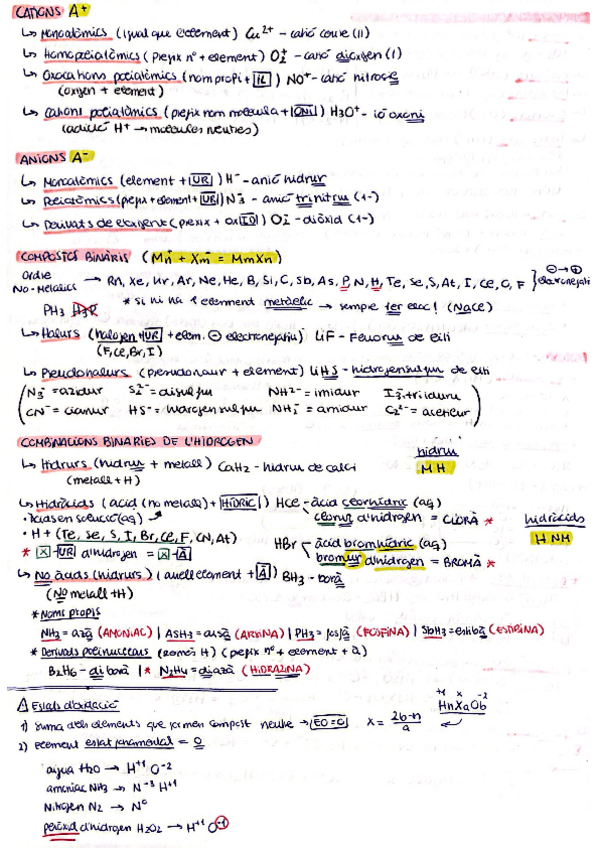 CATIONS A+
↳ Monoatòmics (igual que l'element) Cu²⁺ - catió coure (II)
↳ Homopoliatòmics (prefix nº + element) O₂⁺ - catió dioxigen (1)
↳ Oxocations poliatòmics (nom propi + IL) NO⁺ - catió nitrosil
(oxigen + element)
↳ Cations poliatòmics (prefix nom molècula + ONI) H3O⁺ - ió oxoni
(addició H⁺ → molècules neutres)
ANIONS A⁻
↳ Monoatòmics (element + UR) H⁻ - anió hidrur
↳ Poliatòmics (prefix + element + UR) N₃⁻ - anió trinitrur (1-)
↳ Derivats de l'oxigen (prefix + òxID) O₂⁻ - diòxid (1-)
COMPOSTOS BINARIS (Mn + Xm = MmXn)
Ordre
No-Metàl·lics → Rn, Xe, Kr, Ar, Ne, He, B, Si, C, Sb, As, P, N, H, Te, Se, S, At, I, Cl, O, F } electronegati
* si hi ha 1 element metàl·lic → sempre 1er elec! (NaCl)
PH3 H3P
↳ Halurs (halogen + UR + elem. ⊖ electronegatiu) LiF - Fluorur de liti
(F, Cl, Br, I)
↳ Pseudohalurs (pseudohalur + element) LiHS - hidrogensulfur de liti
N₃⁻ = azidur S₂²⁻ = disulfur NH²⁻ = imidur I₃⁻ = triiodur
CN⁻ = cianur HS⁻ = hidrogensulfur NH₂⁻ = amidur C₂²⁻ = acetilur
COMBINACIONS BINÀRIES DE L'HIDROGEN
hidrur
MH
↳ Hidrurs (hidrur + metall) CaH₂ - hidrur de calci
(metall + H)
↳ Hidràcids (àcid (no metall) + HÍDRIC) HCl - àcid clorhídric (aq)
• Àcids en solució (aq) clorur d'hidrogen = CLORÀ *
hidràcids
H NM
• H + (Te, Se, S, I, Br, Cl, F, CN, At) HBr - àcid bromhídric (aq)
* X-UR d'hidrogen = X-À bromur d'hidrogen = BROMÀ *
↳ No àcids (hidrurs) (arrel element + À) BH₃ - borà
(No metall + H)
* Noms propis
NH₃ = azà (AMONÍAC) | AsH₃ = arsà (ARSINA) | PH₃ = fosfà (FOSFINA) | SbH₃ = estibà (ESTIBINA)
* Derivats polinuclears (només H) (prefix nº + element + à)
B₂H₆ - diborà | * N₂H₄ = diazà (HIDRAZINA)
⚠ Estats d'oxidació
+1 x -2
HnXaOb
1) Suma dels elements que formen compost neutre → EO = 0 X = 2b-n/a
2) Element estat fonamental = 0
aigua H₂O → H⁺¹ O⁻²
amoníac NH₃ → N⁻³ H⁺¹
Nitrogen N₂ → N⁰
peròxid d'hidrogen H₂O₂ → H⁺¹ O⁻¹